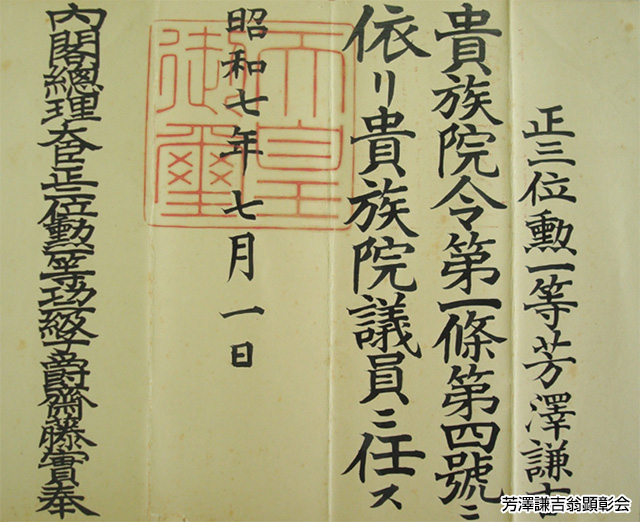 正三位勲一等芳澤謙吉
貴族院令第一條第四號ニ
依リ貴族院議員ニ任ス
天皇御璽
昭和七年七月一日
内閣總理大臣正二位勲一等功二級子爵齋藤實奉
芳澤謙吉翁顕彰会